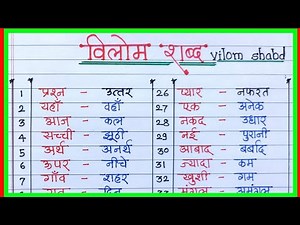 विलोम शब्द vilom shabd
1 प्रश्न - उत्तर 26 प्यार - नफरत
2 यहाँ - वहाँ 27 एक - अनेक
3 आज - कल 28 नकद - उधार
4 सच्ची - झूठी 29 नई - पुरानी
5 अर्थ - अनर्थ 30 आबाद - बर्बाद
6 ऊपर - नीचे 31 ज्यादा - कम
7 गाँव - शहर 32 खुशी - गम
रात - दिन 33 मंगल - अमंगल